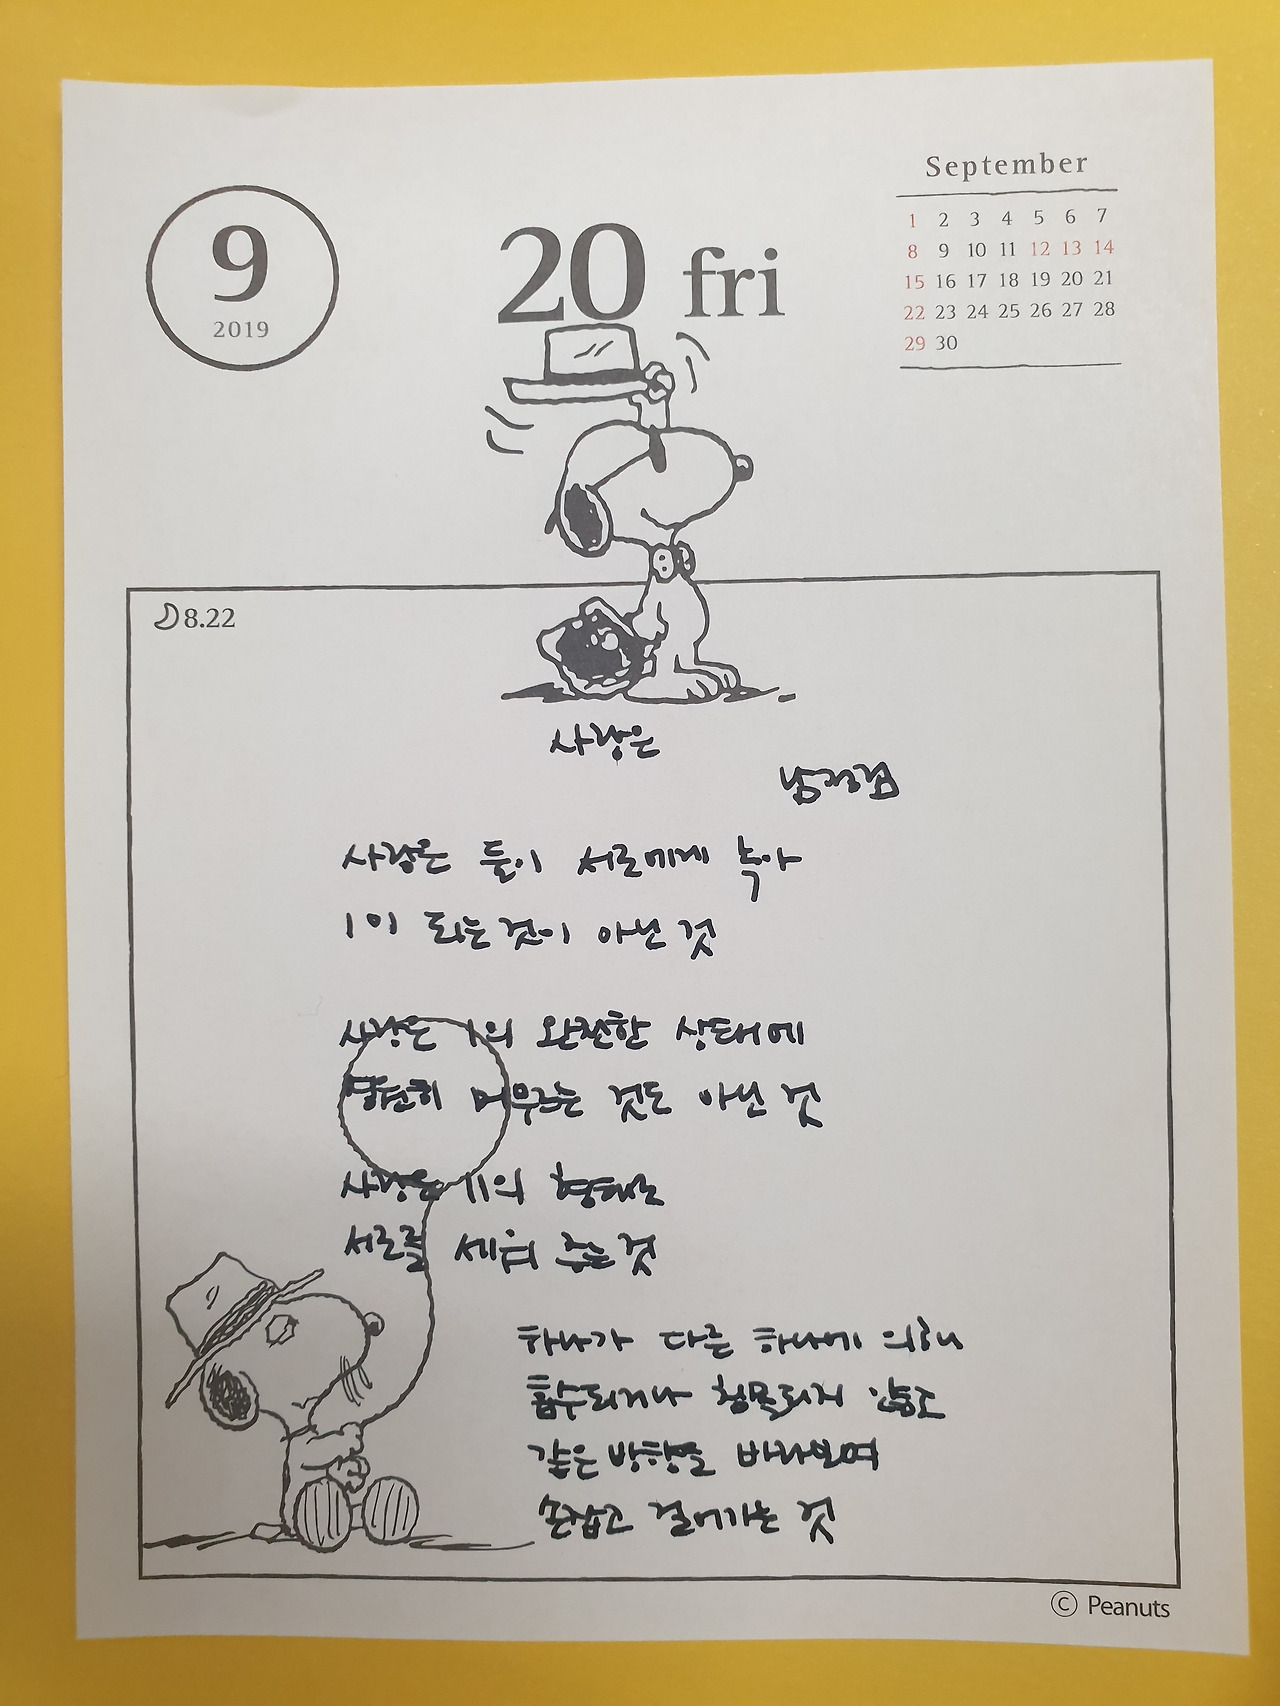 9
2019
20 fri
September
1 2 3 4 5 6 7
8 9 10 11 12 13 14
15 16 17 18 19 20 21
22 23 24 25 26 27 28
29 30
8.22
사랑은
사랑은 둘이 서로에게 녹아
1이 되는 것이 아닌 것
사랑은 1의 완전한 상태에
영원히 머무르는 것도 아닌 것
사랑은 11의 형태로
서로를 세워 주는 것
하나가 다른 하나에 의해
흡수되거나 함몰되지 않고
같은 방향을 바라보며
손잡고 걸어가는 것
© Peanuts